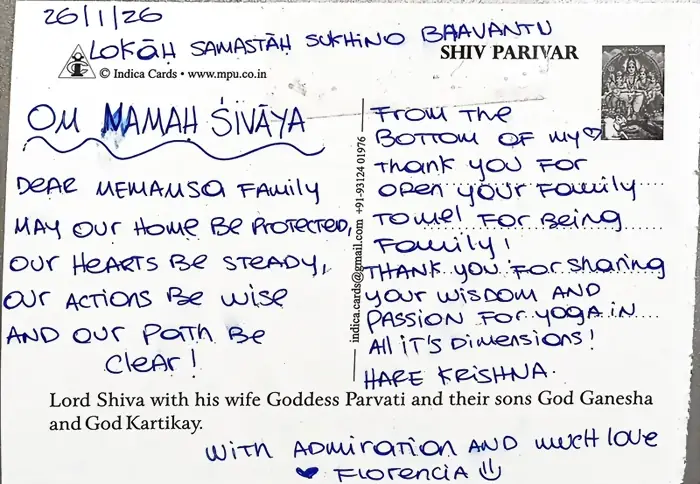 26/1/26
LOKĀḤ SAMASTĀḤ SUKHINO BHAVANTU
SHIV PARIVAR
© Indica Cards • www.mpu.co.in
OM NAMAḤ ŚIVĀYA
DEAR MEMAMSA FAMILY
MAY OUR HOME BE PROTECTED,
OUR HEARTS BE STEADY,
OUR ACTIONS BE WISE
AND OUR PATH BE
CLEAR!
indica.cards@gmail.com +91-93124 01976
FROM THE
BOTTOM OF MY ♡
THANK YOU FOR
OPEN YOUR FAMILY
TO ME! FOR BEING
FAMILY!
THANK YOU FOR SHARING
YOUR WISDOM AND
PASSION FOR YOGA IN
ALL IT'S DIMENSIONS!
HARE KRISHNA.
Lord Shiva with his wife Goddess Parvati and their sons God Ganesha
and God Kartikay.
WITH ADMIRATION AND MUCH LOVE
♥ FLORENCIA